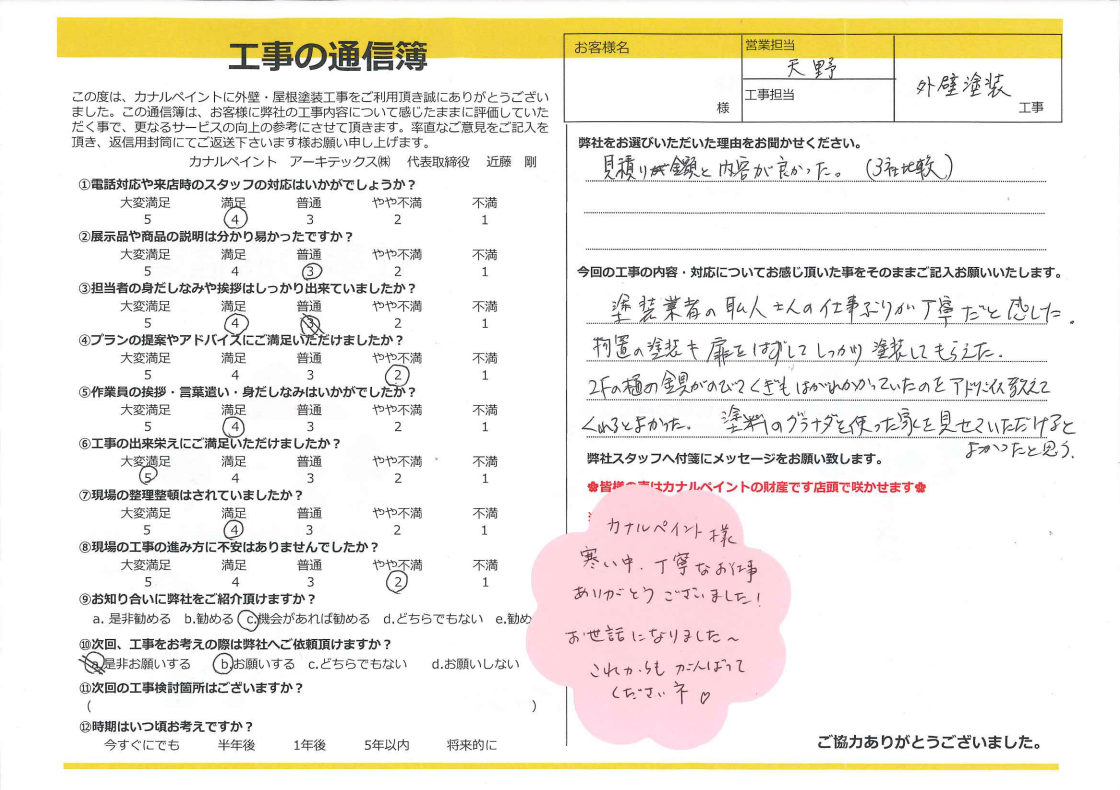 工事の通信簿
お客様名
様
営業担当
天野
工事担当
外壁塗装
工事
この度は、カナルペイントに外壁・屋根塗装工事をご利用頂き誠にありがとうござい
ました。この通信簿は、お客様に弊社の工事内容について感じたままに評価していた
だく事で、更なるサービスの向上の参考にさせて頂きます。率直なご意見をご記入を
頂き、返信用封筒にてご返送下さいます様お願い申し上げます。
カナルペイント アーキテックス㈱ 代表取締役 近藤 剛
①電話対応や来店時のスタッフの対応はいかがでしょうか？
大変満足 満足 普通 やや不満 不満
5 4 3 2 1
②展示品や商品の説明は分かり易かったですか？
大変満足 満足 普通 やや不満 不満
5 4 3 2 1
③担当者の身だしなみや挨拶はしっかり出来ていましたか？
大変満足 満足 普通 やや不満 不満
5 4 3 2 1
④プランの提案やアドバイスにご満足いただけましたか？
大変満足 満足 普通 やや不満 不満
5 4 3 2 1
⑤作業員の挨拶・言葉遣い・身だしなみはいかがでしたか？
大変満足 満足 普通 やや不満 不満
5 4 3 2 1
⑥工事の出来栄えにご満足いただけましたか？
大変満足 満足 普通 やや不満 不満
5 4 3 2 1
⑦現場の整理整頓はされていましたか？
大変満足 満足 普通 やや不満 不満
5 4 3 2 1
⑧現場の工事の進み方に不安はありませんでしたか？
大変満足 満足 普通 やや不満 不満
5 4 3 2 1
⑨お知り合いに弊社をご紹介頂けますか？
a. 是非勧める b.勧める c.機会があれば勧める d.どちらでもない e.勧め
⑩次回、工事をお考えの際は弊社へご依頼頂けますか？
a.是非お願いする b.お願いする c.どちらでもない d.お願いしない
⑪次回の工事検討箇所はございますか？
( )
⑫時期はいつ頃お考えですか？
今すぐにでも 半年後 1年後 5年以内 将来的に
弊社をお選びいただいた理由をお聞かせください。
見積り金額と内容が良かった。(3社比較)
今回の工事の内容・対応についてお感じ頂いた事をそのままご記入お願いいたします。
塗装業者の職人さんの仕事ぶりが丁寧だと感じた。
物置の塗装も扉をはずしてしっかり塗装してもらえた。
2Fの樋の金具がのびてくぎもはがれかかっていたのをアドバイス教えて
くれるとよかった。 塗料のグラナダを使った家を見せていただけると
よかったと思う.
弊社スタッフへ付箋にメッセージをお願い致します。
✿皆様の声はカナルペイントの財産です店頭で咲かせます✿
カナルペイント様
寒い中、丁寧なお仕事
ありがとうございました!
お世話になりました～
これからもがんばって
くださいネ♡
ご協力ありがとうございました。